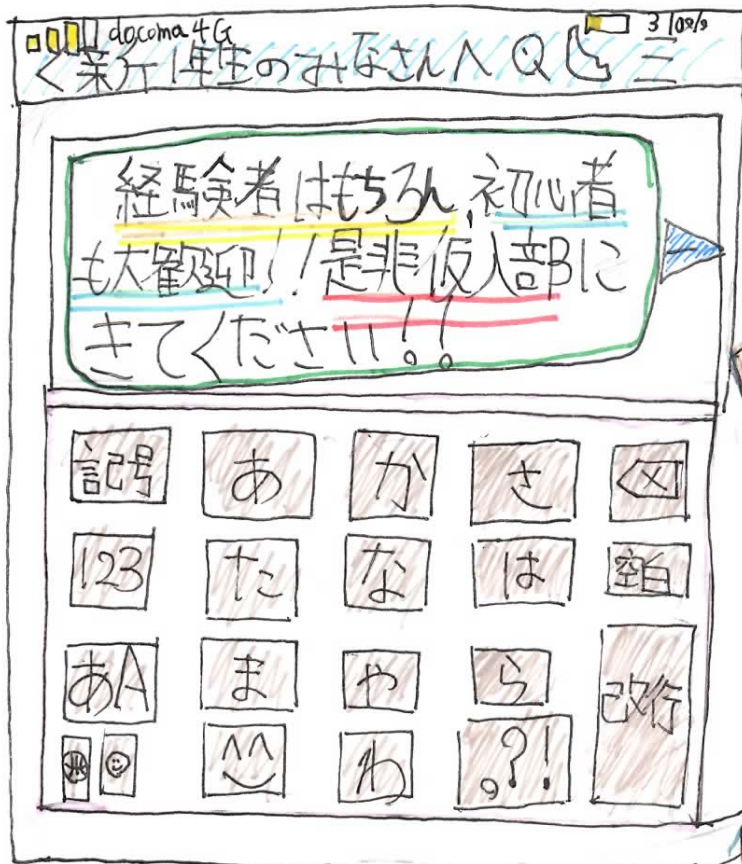 docoma 4G 310%
く新1年生のみなさんへ
経験者はもちろん,初心者
も大歓迎!!是非仮入部に
きてください!!
記号 あ か さ
123 た な は 空白
あA ま や ら 改行
^^ わ 。?!